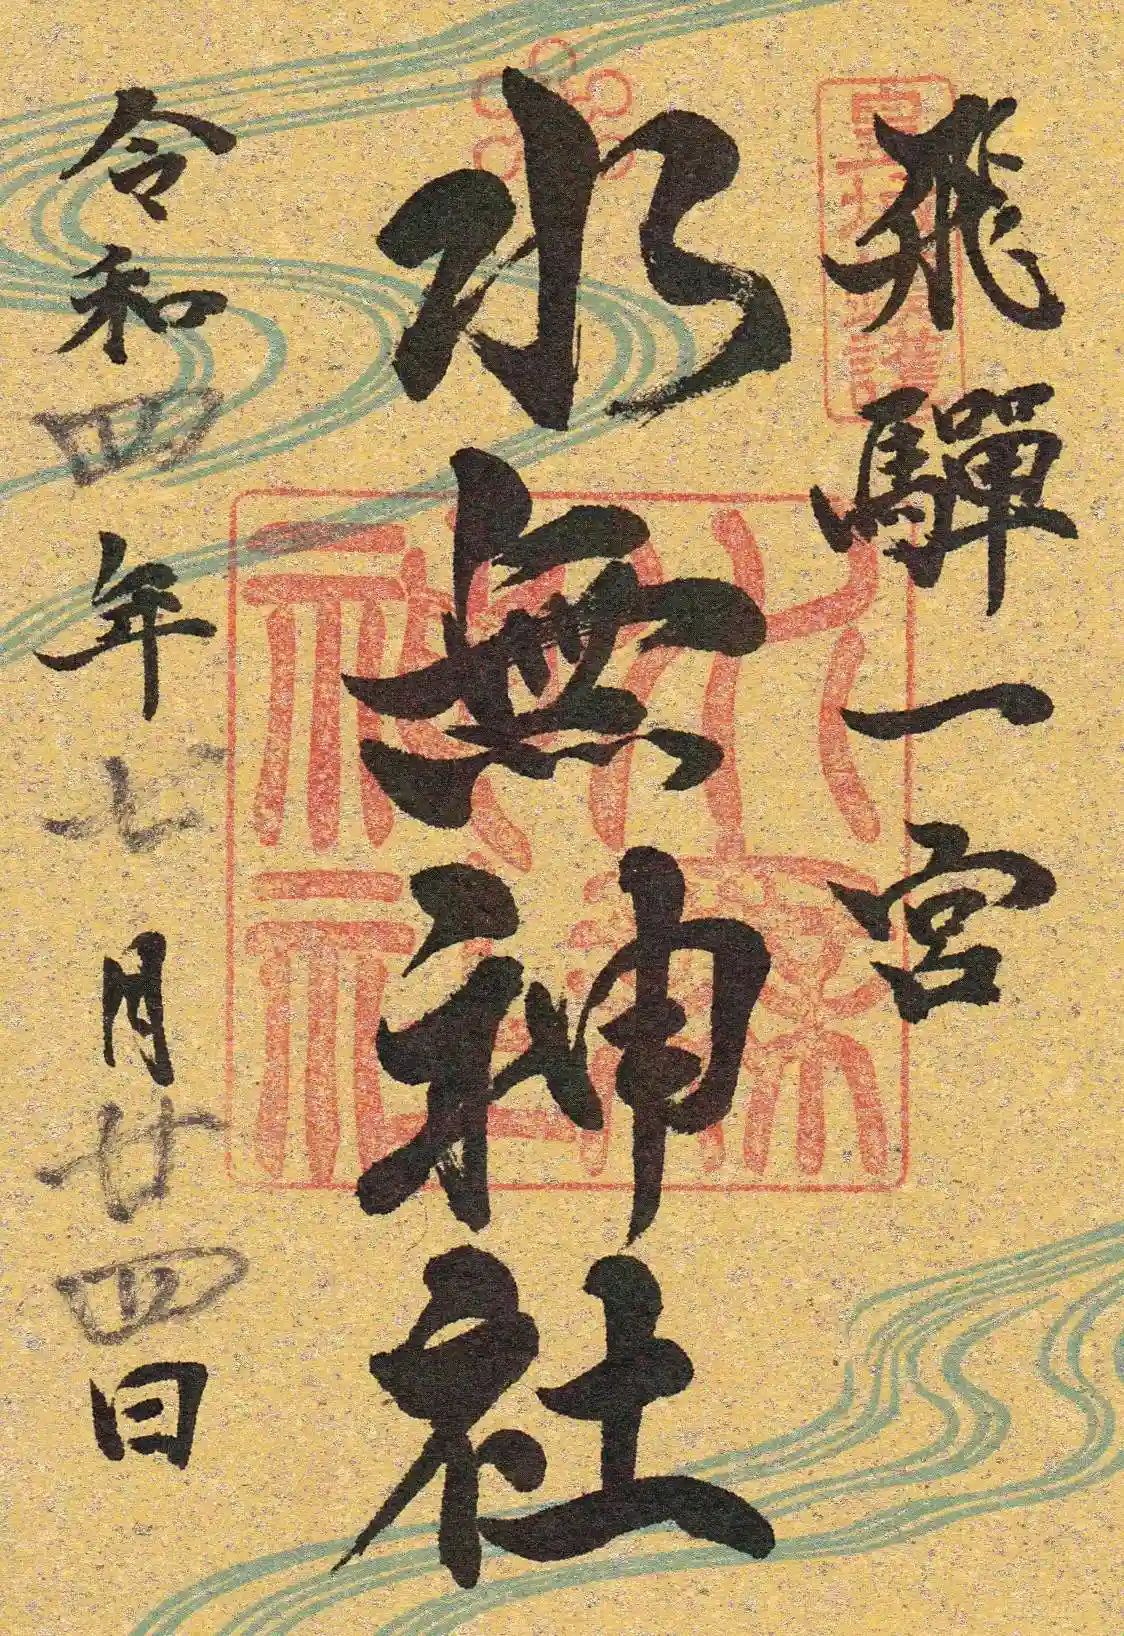 飛驒一宮
水無神社
令和四年七月廿四日
水無神社